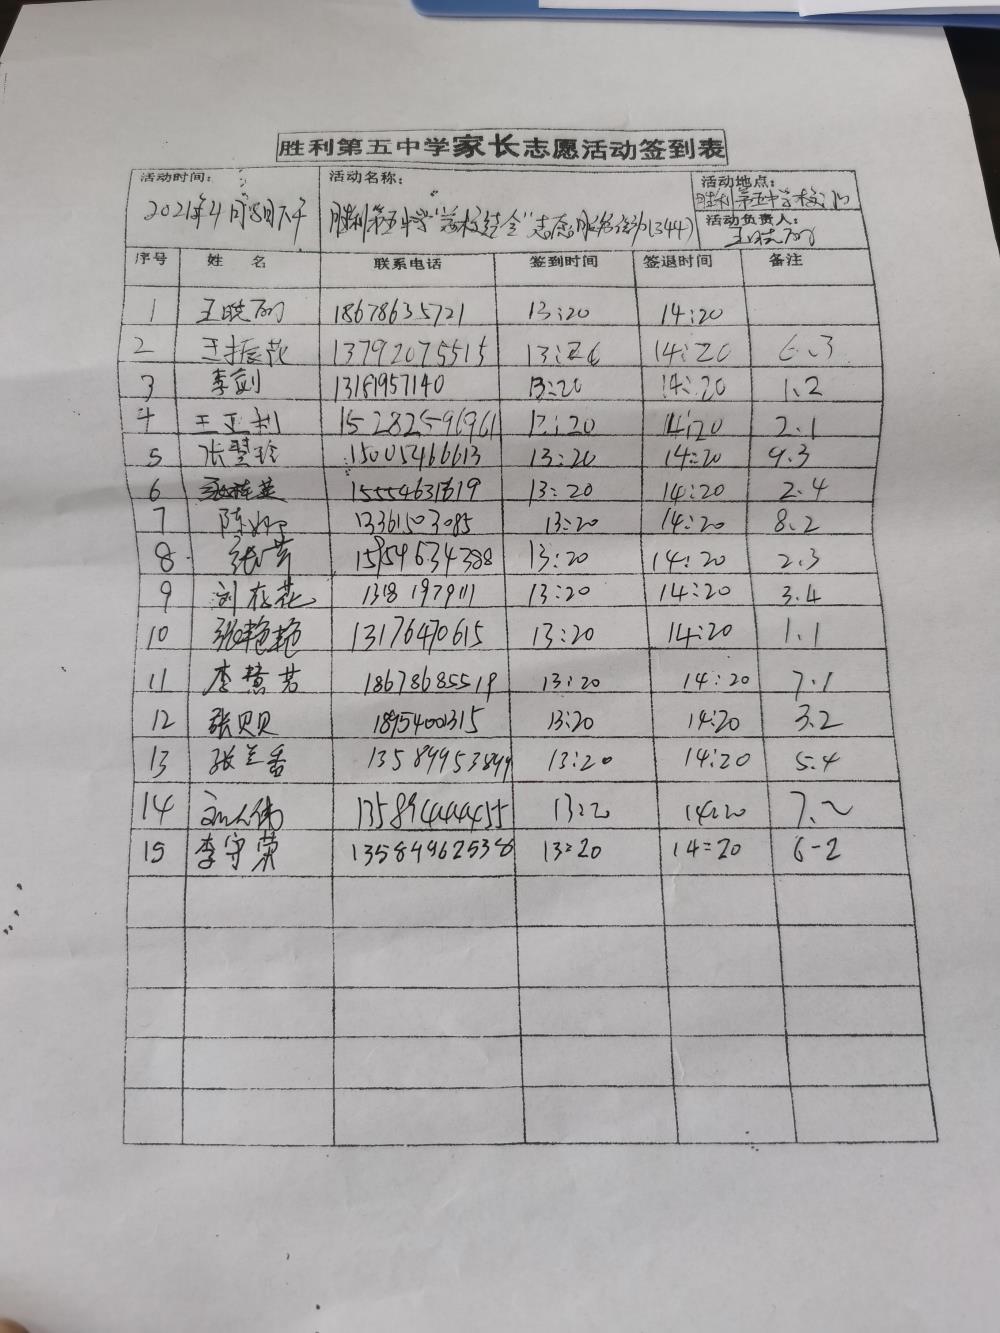 胜利第五中学家长志愿活动签到表
活动时间： 活动名称： 活动地点：
2021年4月8日下午 胜利第五中学 志愿服务活动(344) 胜利第五中学校门口
活动负责人：
王晓丽
序号 姓名 联系电话 签到时间 签退时间 备注
1 王晓丽 18678635721 13:20 14:20
2 王振花 13792075515 13:20 14:20 6.3
3 李剑 13181957140 13:20 14:20 1.2
4 王亚利 14:20 2.1
5 张翠玲 15005466613 13:20 14:20 9.3
6 13:20 14:20 2.4
7 陈 13361503085 13:20 14:20 8.2
8 张芳 15954634388 13:20 14:20 2.3
9 刘存花 13181979111 13:20 14:20 3.4
10 张艳艳 13176470615 13:20 14:20 1.1
11 李慧芳 18678685519 13:20 14:20 7.1
12 张贝贝 18954001315 13:20 14:20 3.2
13 张兰香 13589953899 13:20 14:20 5.4
14 13589444455 13:20 14:20 7.2
15 李守荣 13:20 14:20 6-2